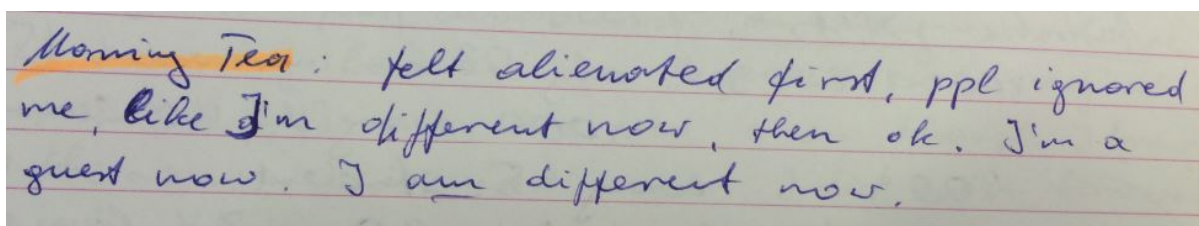 Morning Tea: felt alienated first, ppl ignored
me, like I'm different now, then ok. I'm a
guest now. I am different now.